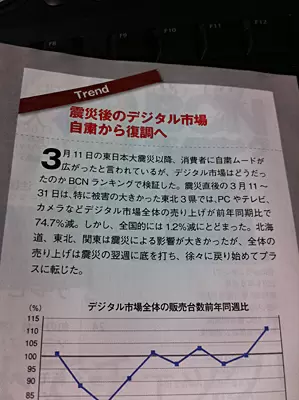 Trend
震災後のデジタル市場
自粛から復調へ
3月11日の東日本大震災以降、消費者に自粛ムードが
広がったと言われているが、デジタル市場はどうだっ
たのかBCNランキングで検証した。震災直後の3月11〜
31日は、特に被害の大きかった東北3県では、PCやテレビ、
カメラなどデジタル市場全体の売り上げが前年同期比で
74.7%減。しかし、全国的には1.2%減にとどまった。北海
道、東北、関東は震災による影響が大きかったが、全体の
売り上げは震災の翌週に底を打ち、徐々に戻り始めてプラ
スに転じた。
デジタル市場全体の販売台数前年同週比
(%)
115
110
105
100
95
90
85